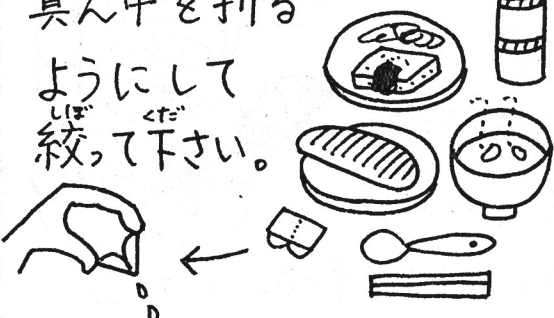 真ん中を折る
ようにして
絞って下さい。
しぼ
くだ